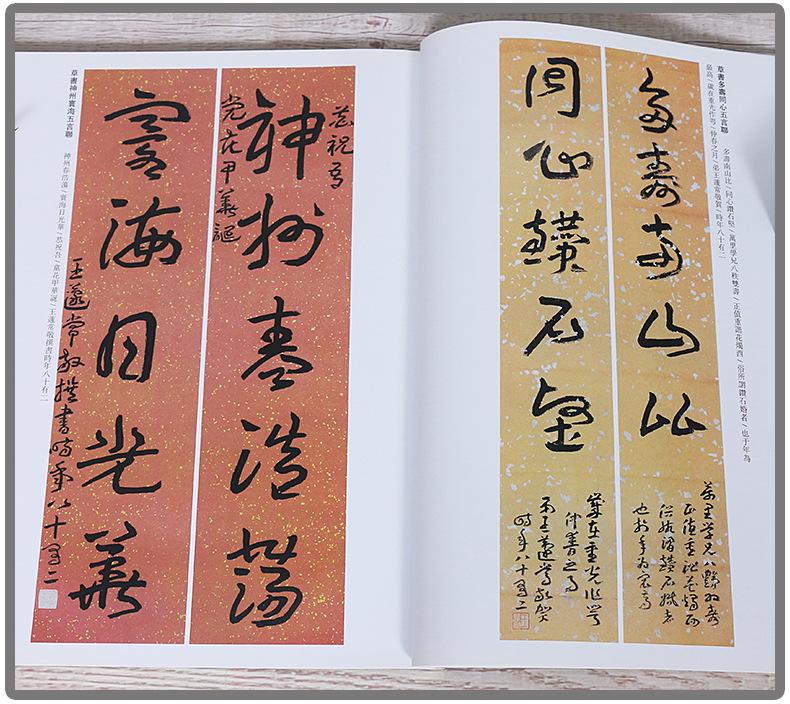 草書多壽同心五言聯
多壽南山比/同心鑽石堅/萬里學兄八秩雙壽/正值重諧花燭酉/俗所謂鑽石婚者/也于年為
最高/歲在重光作噩/仲春之月/弟王蘧常敬賀/時年八十有二
多壽南山比
萬里學兄八秩雙壽
正值重諧花燭酉
俗所謂鑽石婚者
也於年為最高
同心鑽石堅
歲在重光作噩
仲春之月
弟王蘧常敬賀
時年八十有二
恭祝吾
神州春浩蕩
党花甲華誕
寰海日光華
王蘧常敬撰書時年八十有二
草書神州寰海五言聯
神州春浩蕩/寰海日光華/恭祝吾/黨花甲華誕/王蘧常敬撰書時年八十有二